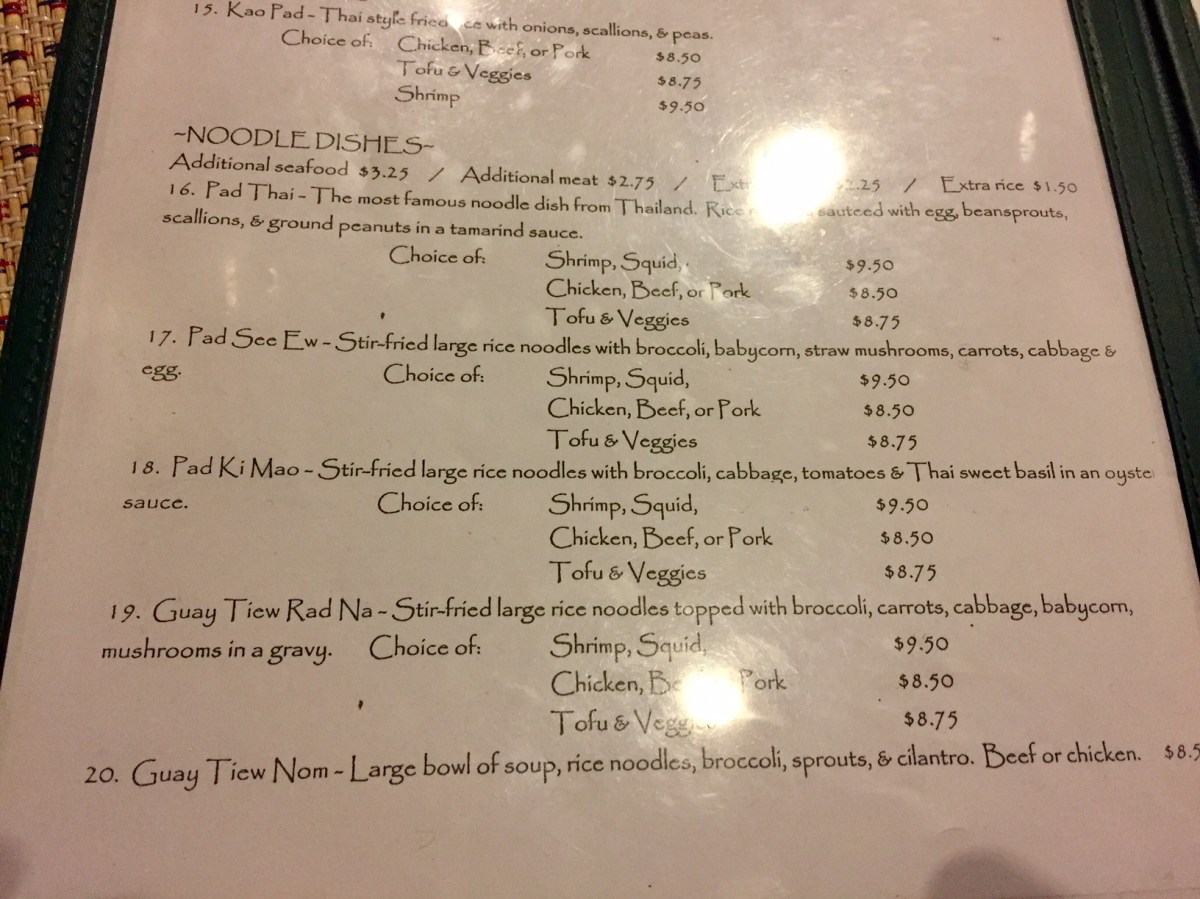 15. Kao Pad - Thai style fried with onions, scallions, & peas.
Choice of: Chicken, Beef, or Pork $8.50
Tofu & Veggies $8.75
Shrimp $9.50
~NOODLE DISHES~
Additional seafood $3.25 / Additional meat $2.75 / / Extra rice $1.50
16. Pad Thai - The most famous noodle dish from Thailand. Rice sauteed with egg, beansprouts,
scallions, & ground peanuts in a tamarind sauce.
Choice of: Shrimp, Squid, $9.50
Chicken, Beef, or Pork $8.50
Tofu & Veggies $8.75
17. Pad See Ew - Stir-fried large rice noodles with broccoli, babycorn, straw mushrooms, carrots, cabbage &
egg. Choice of: Shrimp, Squid, $9.50
Chicken, Beef, or Pork $8.50
Tofu & Veggies $8.75
18. Pad Ki Mao - Stir-fried large rice noodles with broccoli, cabbage, tomatoes & Thai sweet basil in an oyste
sauce. Choice of: Shrimp, Squid, $9.50
Chicken, Beef, or Pork $8.50
Tofu & Veggies $8.75
19. Guay Tiew Rad Na - Stir-fried large rice noodles topped with broccoli, carrots, cabbage, babycorn,
mushrooms in a gravy. Choice of: Shrimp, Squid, $9.50
Chicken, Pork $8.50
Tofu & $8.75
20. Guay Tiew Nom - Large bowl of soup, rice noodles, broccoli, sprouts, & cilantro. Beef or chicken. $8.5